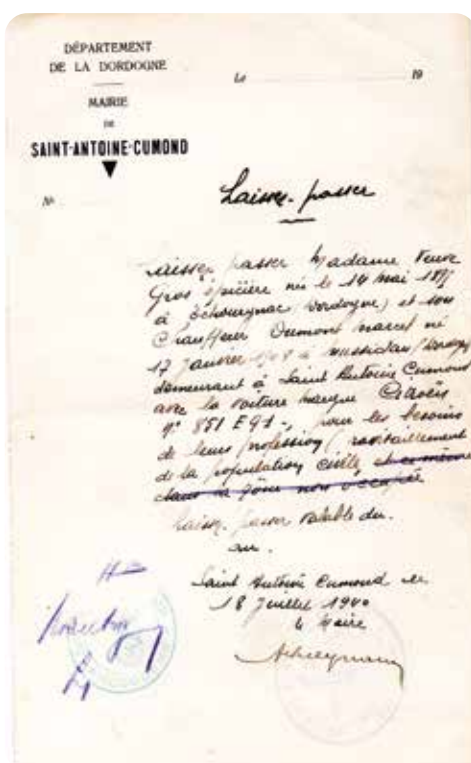 DÉPARTEMENT
DE LA DORDOGNE
MAIRIE
DE
SAINT-ANTOINE-CUMOND
Le 19
No
Laissez-passer
Laissez passer Madame Veuve
Gros épicière née le 14 mai 1897
à Echourgnac (Dordogne) et son
Chauffeur Dumont Marcel né
17 janvier à Mussidan (Dordogne)
demeurant à Saint Antoine Cumond
avec la voiture marque Citroën
n° 851 EG1 pour les besoins
de leurs profession (ravitaillement
de la population civile et même
dans la zône non occupée
Laissez-passer valable du
au
Saint Antoine Cumond le
18 Juillet 1940
le Maire